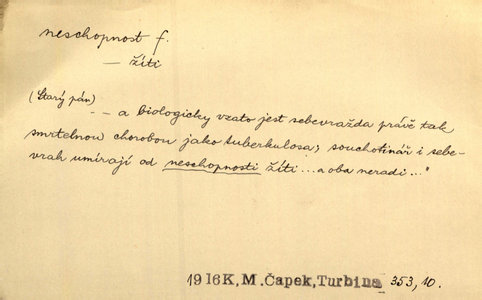 neschopnost f.
— žíti
(Starý pán)
— — a biologicky vzato jest sebevražda právě tak
smrtelnou chorobou jako tuberkulosa; souchotinář i sebe-
vrah umírají od neschopnosti žíti ... a oba neradi..."
1916K, M. Čapek, Turbina 353, 10.